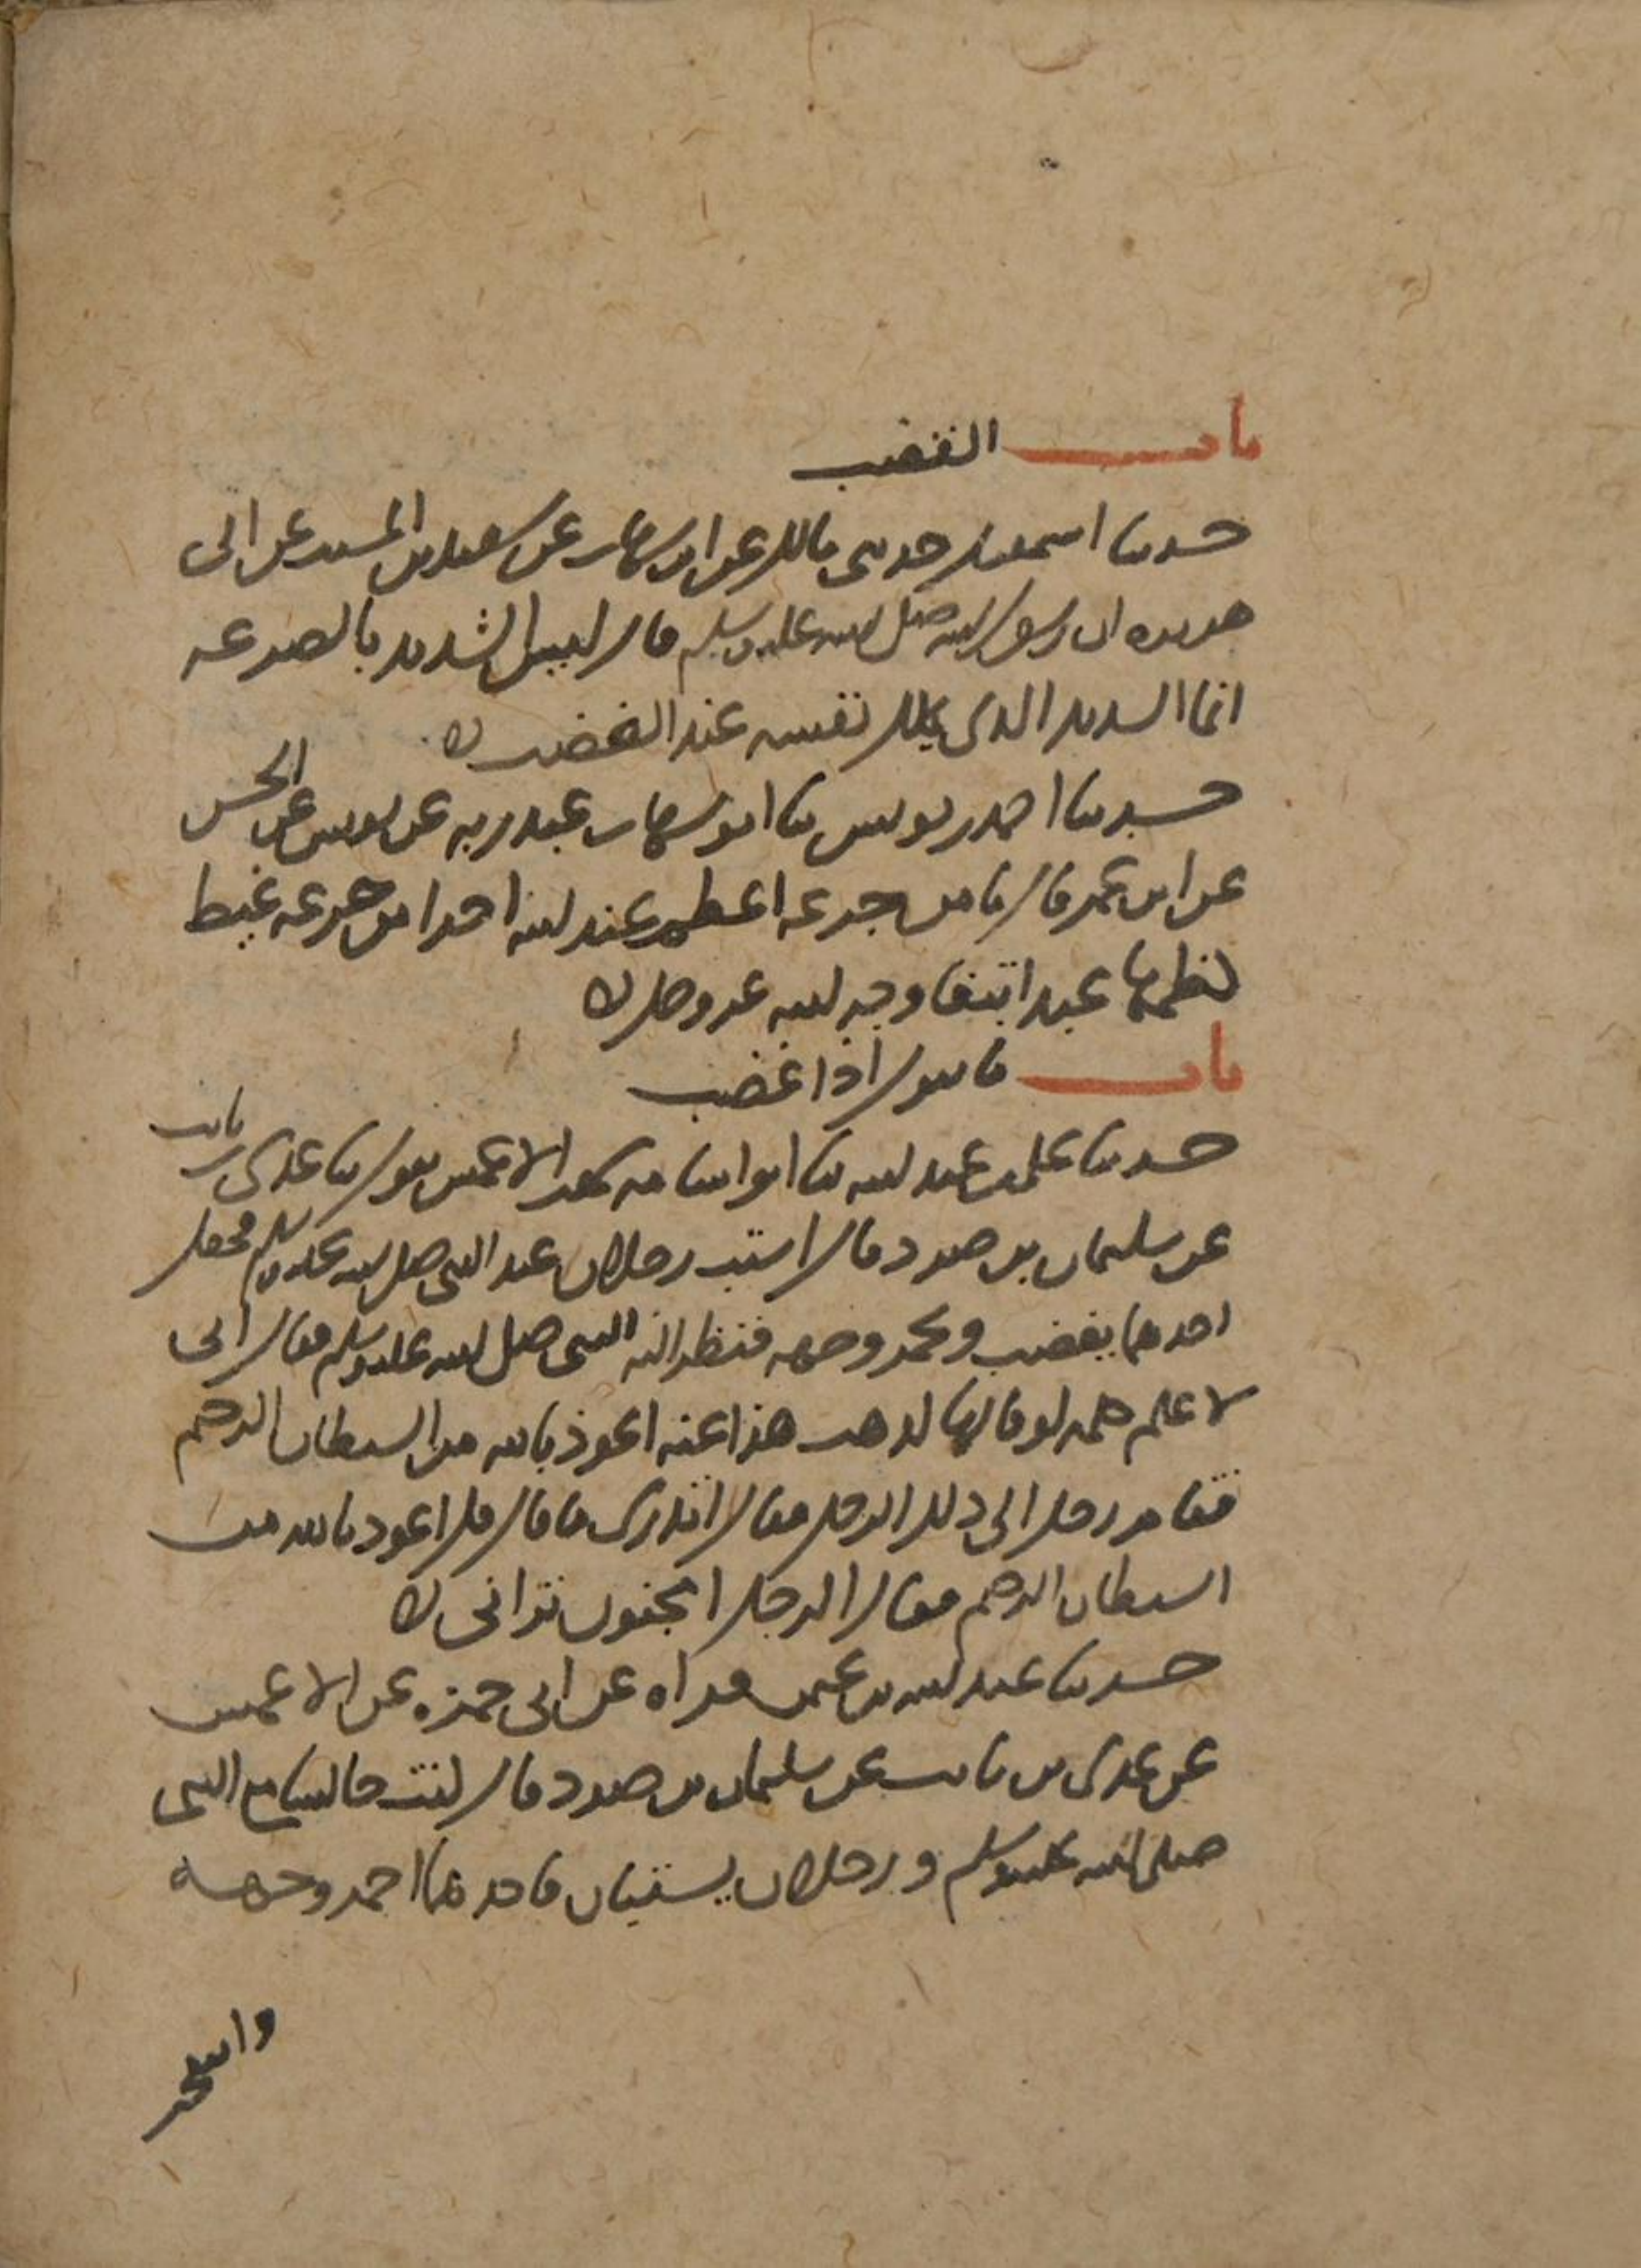 باب الغضب
حدثنا اسمعيل حدثني مالك عن ابن شهاب عن سعيد بن المسيب عن ابي
هريرة ان رسول الله صلى الله عليه وسلم قال ليس الشديد بالصرعه
انما الشديد الذي يملك نفسه عند الغضب ه
حدثنا احمد بن يونس ثنا ابو شهاب عبد ربه عن يونس عن الحسن
عن ابن عمر قال ما من جرعه اعظم عند الله اجرا من جرعه غيظ
كظمها عبد ابتغا وجه الله عز وجل ه
باب ما يقول اذا غضب
حدثنا علي بن عبد الله ثنا ابو اسامه سمعت الاعمش يقول ثنا عدي بن ثابت
عن سليمان بن صرد قال استب رجلان عند النبي صلى الله عليه وسلم فجعل
احدهما يغضب ويحمر وجهه فنظر اليه النبي صلى الله عليه وسلم فقال اني
لاعلم كلمه لو قالها لذهب هذا عنه اعوذ بالله من الشيطان الرجيم
فقام رجل الى ذلك الرجل فقال اتدري ما قال قل اعوذ بالله من
الشيطان الرجيم فقال الرجل امجنون تراني ه
حدثنا عبد الله بن عثمن قراه عن ابي حمزه عن الاعمش
عن عدي بن ثابت عن سليمان بن صرد قال كنت جالسا مع النبي
صلى الله عليه وسلم ورجلان يستبان فاحدهما احمر وجهه
وانتفخ